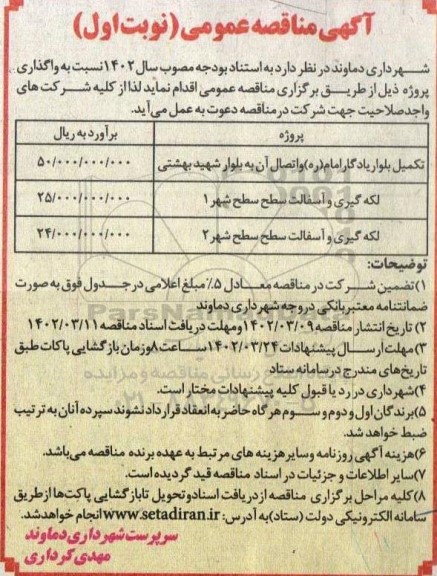 آگهی مناقصه عمومی (نوبت اول)
شهرداری دماوند در نظر دارد به استناد بودجه مصوب سال ۱۴۰۲ نسبت به واگذاری
پروژه ذیل از طریق برگزاری مناقصه عمومی اقدام نماید لذا از کلیه شرکت های
واجدصلاحیت جهت شرکت در مناقصه دعوت به عمل می آید.
پروژه برآورد به ریال
تکمیل بلوار یادگار امام(ره) واتصال آن به بلوار شهید بهشتی ۵۰/۰۰۰/۰۰۰/۰۰۰
لکه گیری و آسفالت سطح سطح شهر ۱ ۲۵/۰۰۰/۰۰۰/۰۰۰
لکه گیری و آسفالت سطح سطح شهر ۲ ۲۴/۰۰۰/۰۰۰/۰۰۰
توضیحات:
۱)تضمین شرکت در مناقصه معادل ۵٪ مبلغ اعلامی در جدول فوق به صورت
ضمانتنامه معتبر بانکی در وجه شهرداری دماوند
۲) تاریخ انتشار مناقصه ۱۴۰۲/۰۳/۰۹ ومهلت دریافت اسناد مناقصه ۱۴۰۲/۰۳/۱۱
۳)مهلت ارسال پیشنهادات ۱۴۰۲/۰۳/۲۴ ساعت ۸ وزمان بازگشایی پاکات طبق
تاریخ های مندرج در سامانه ستاد
۴)شهرداری در رد یا قبول کلیه پیشنهادات مختار است.
۵)برندگان اول و دوم و سوم هرگاه حاضر به انعقاد قرارداد نشوند سپرده آنان به ترتیب
ضبط خواهد شد.
۶)هزینه آگهی روزنامه وسایر هزینه های مرتبط به عهده برنده مناقصه می باشد.
۷)سایر اطلاعات و جزئیات در اسناد مناقصه قید گردیده است.
۸)کلیه مراحل برگزاری مناقصه از دریافت اسناد و تحویل تا بازگشایی پاکت ها از طریق
سامانه الکترونیکی دولت (ستاد) به آدرس: www.setadiran.ir انجام خواهد شد.
سرپرست شهرداری دماوند
مهدی کرداری